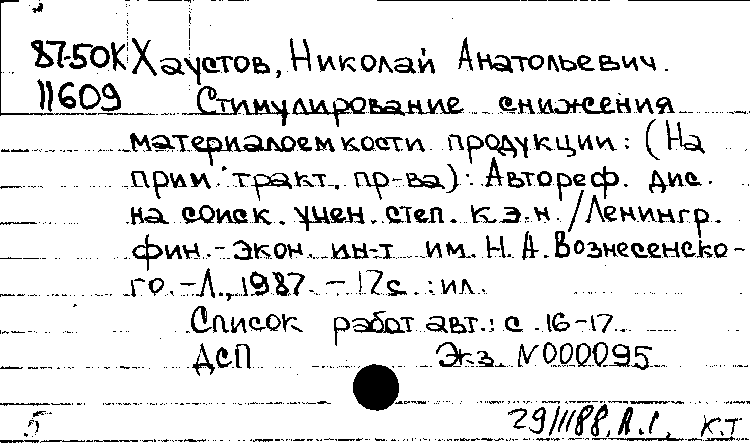 87-50К Хаустов, Николай Анатольевич.
11609 Стимулирование снижения
материалоемкости продукции: (На
прим. тракт. пр-ва): Автореф. дис.
на соиск. учен. степ. к.э.н. /Ленингр.
фин.-экон. ин-т им. Н.А.Вознесенско-
го.-Л., 1987. - 17с. : ил.
Список работ авт.: с. 16-17.
ДСП Экз. N000095
5 29/II88, Л.1, К.Т